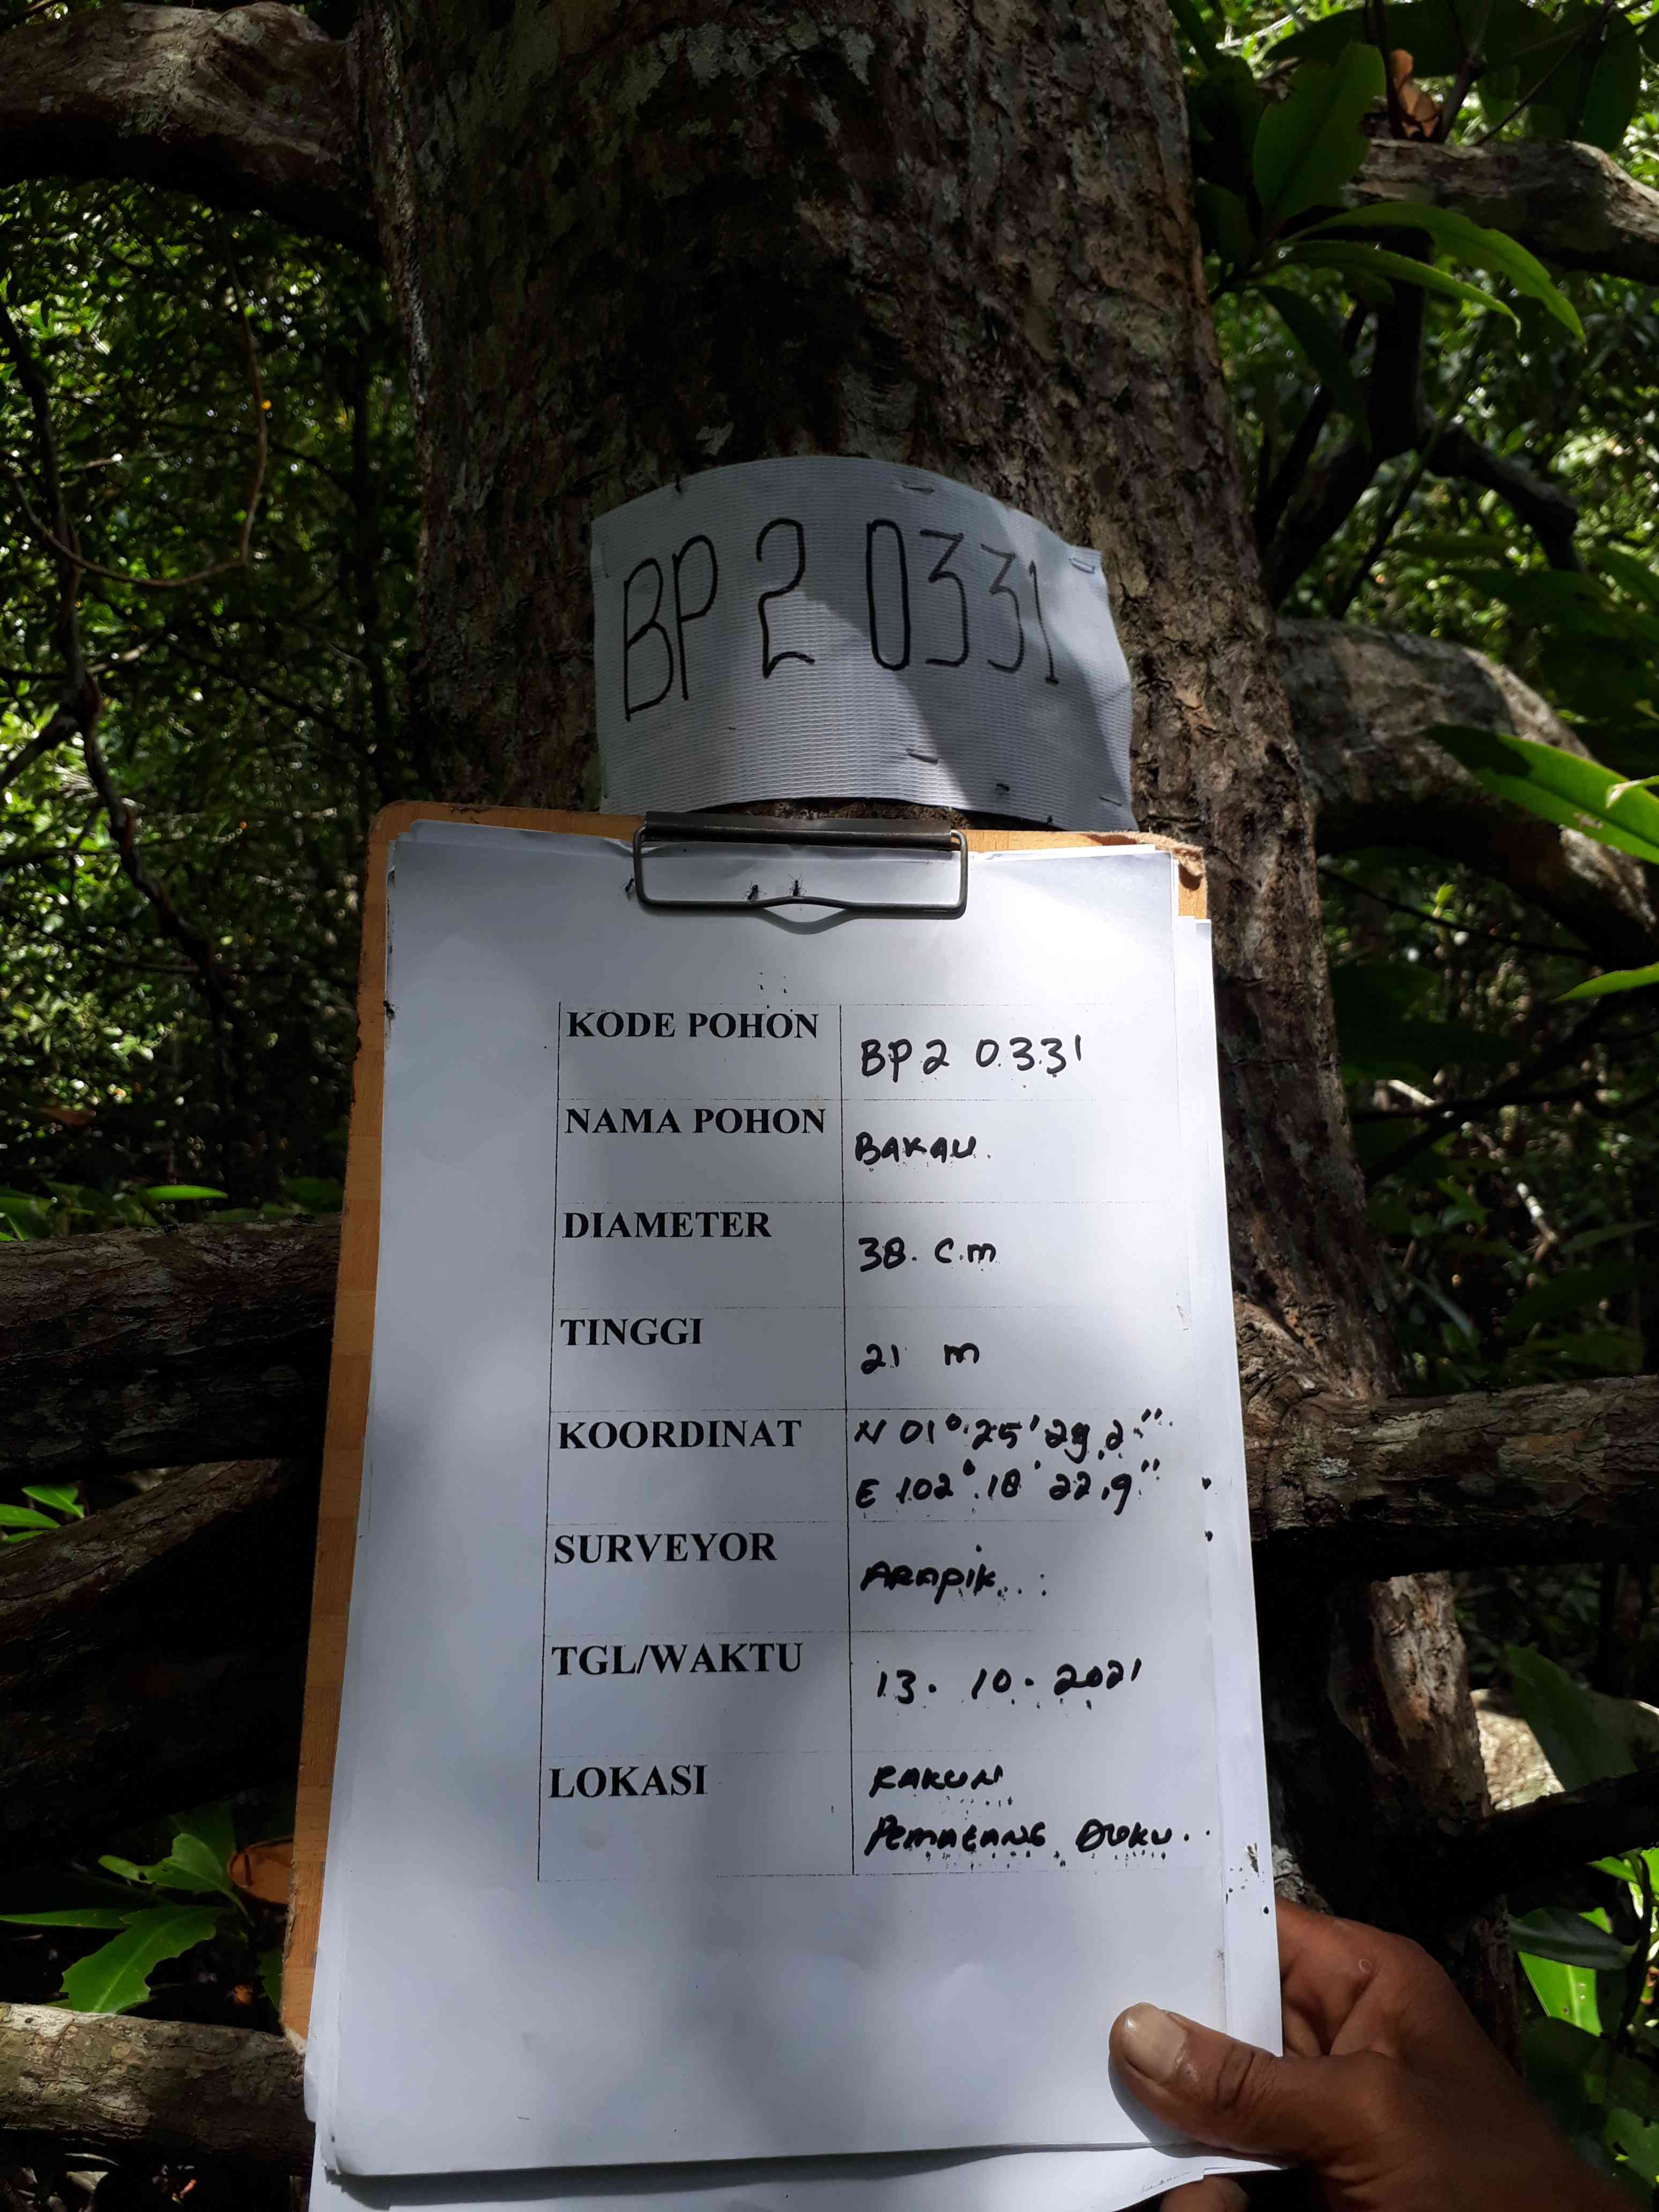 BP 2 0331
KODE POHON BP 2 0331
NAMA POHON BAKAU.
DIAMETER 38. C.m
TINGGI 21 m
KOORDINAT N 01° 25' 29,2"
E 102° 18' 22,9"
SURVEYOR ARAPIK
TGL/WAKTU 13. 10. 2021
LOKASI RAKUN
PEMATANG DUKU.